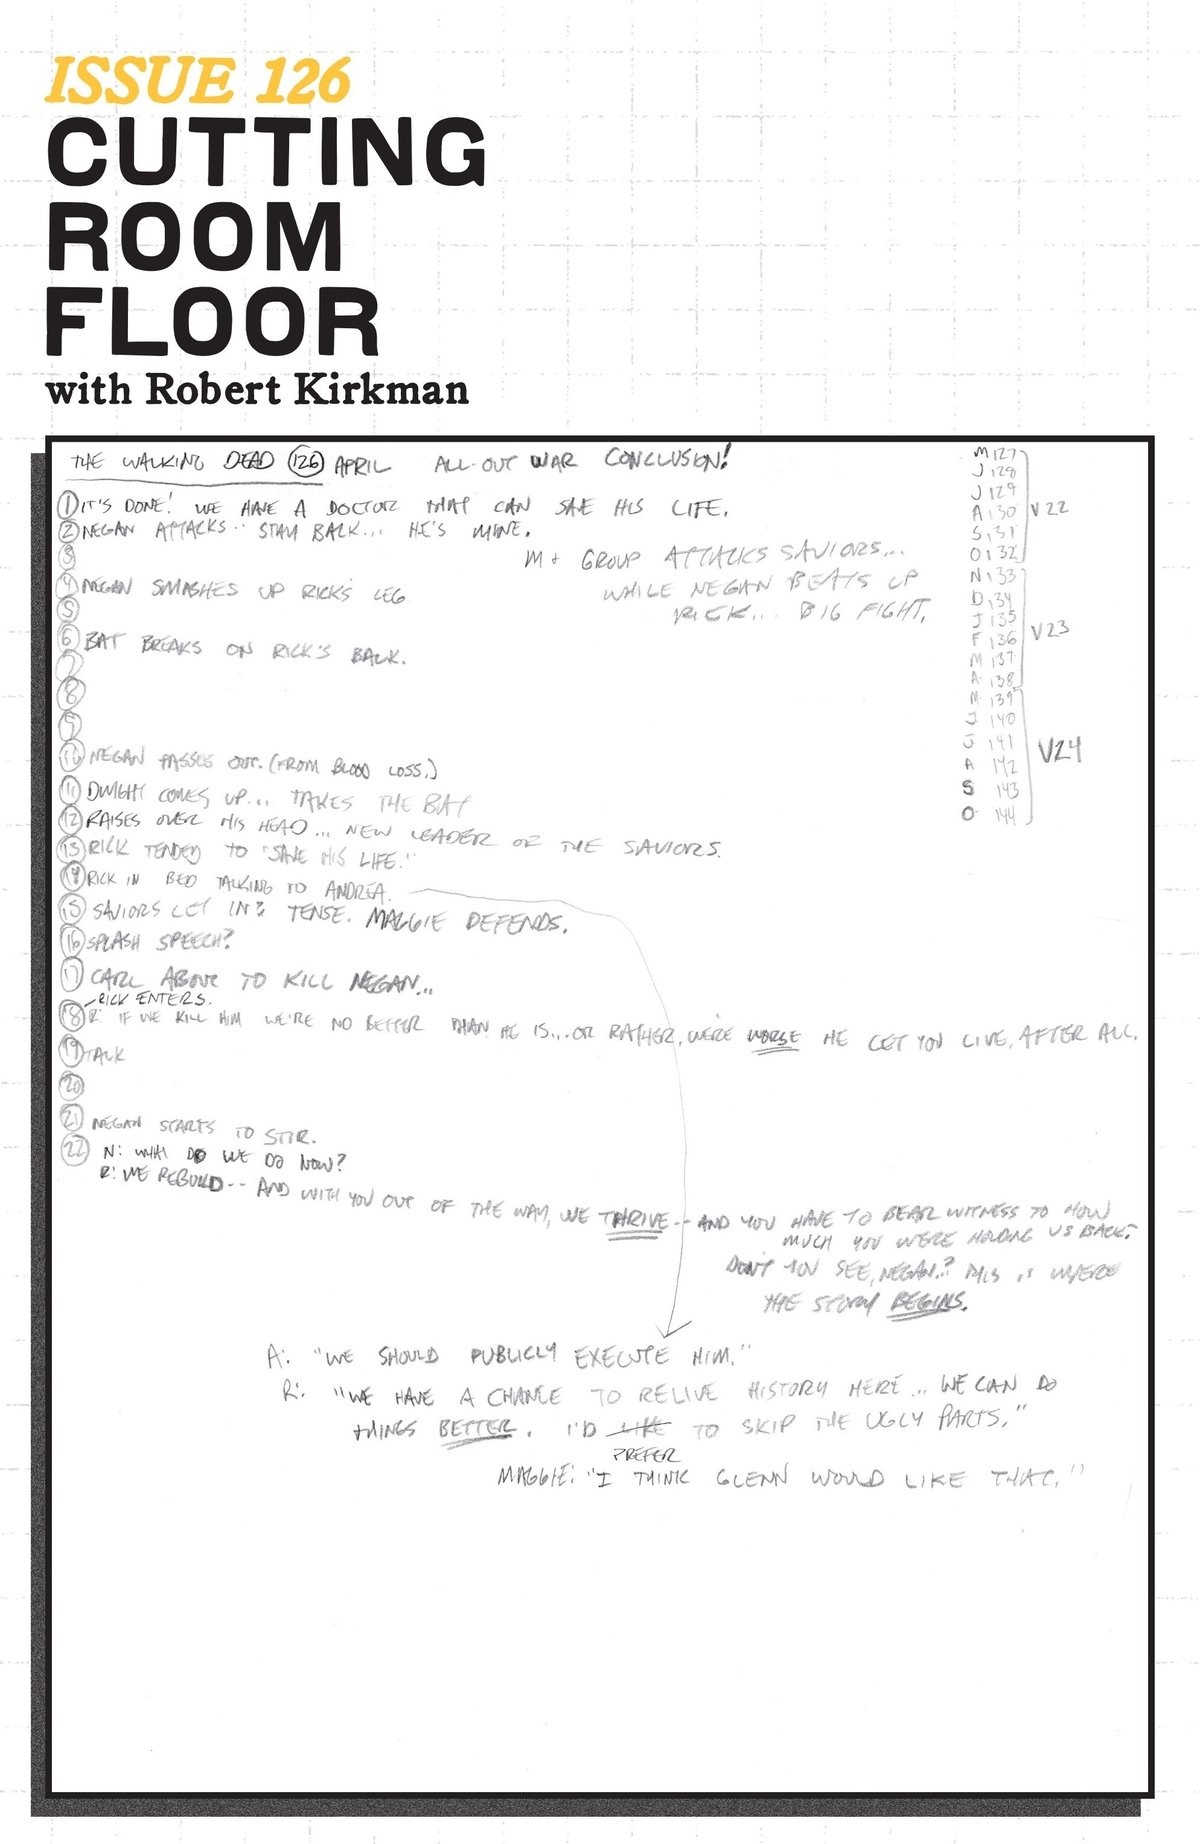 ISSUE 126
CUTTING
ROOM
FLOOR
with Robert Kirkman
THE WALKING DEAD 126 APRIL ALL-OUT WAR CONCLUSION!
1 IT'S DONE! WE HAVE A DOCTOR THAT CAN SAVE HIS LIFE.
2 NEGAN ATTACKS.. STAY BACK... HE'S MINE.
3
M + GROUP ATTACKS SAVIORS...
4 NEGAN SMASHES UP RICK'S LEG
WHILE NEGAN BEATS UP
5
RICK... BIG FIGHT.
6 BAT BREAKS ON RICK'S BACK.
7
8
9
10 NEGAN PASSES OUT. (FROM BLOOD LOSS.)
11 DWIGHT COMES UP... TAKES THE BAT
12 RAISES OVER HIS HEAD... NEW LEADER OF THE SAVIORS.
13 RICK TENDED TO "SAVE HIS LIFE."
14 RICK IN BED TALKING TO ANDREA.
15 SAVIORS LET IN? TENSE. MAGGIE DEFENDS.
16 SPLASH SPEECH?
17 CARL ABOUT TO KILL NEGAN...
RICK ENTERS.
18 R: IF WE KILL HIM WE'RE NO BETTER THAN HE IS... OR RATHER, WE'RE WORSE HE LET YOU LIVE, AFTER ALL.
19 TALK
20
21 NEGAN STARTS TO STIR.
22 N: WHAT DO WE DO NOW?
R: WE REBUILD-- AND WITH YOU OUT OF THE WAY, WE THRIVE-- AND YOU HAVE TO BEAR WITNESS TO HOW
MUCH YOU WERE HOLDING US BACK.
DON'T YOU SEE, NEGAN? THIS IS WHERE
THE STORY BEGINS.
A: "WE SHOULD PUBLICLY EXECUTE HIM."
R: "WE HAVE A CHANCE TO RELIVE HISTORY HERE... WE CAN DO
THINGS BETTER. I'D LIKE TO SKIP THE UGLY PARTS."
PREFER
MAGGIE: "I THINK GLENN WOULD LIKE THAT."
M 127
J 128
J 129
A 130 V22
S 131
O 132
N 133
D 134
J 135
F 136 V23
M 137
A 138
M 139
J 140
J 141 V24
A 142
S 143
O 144